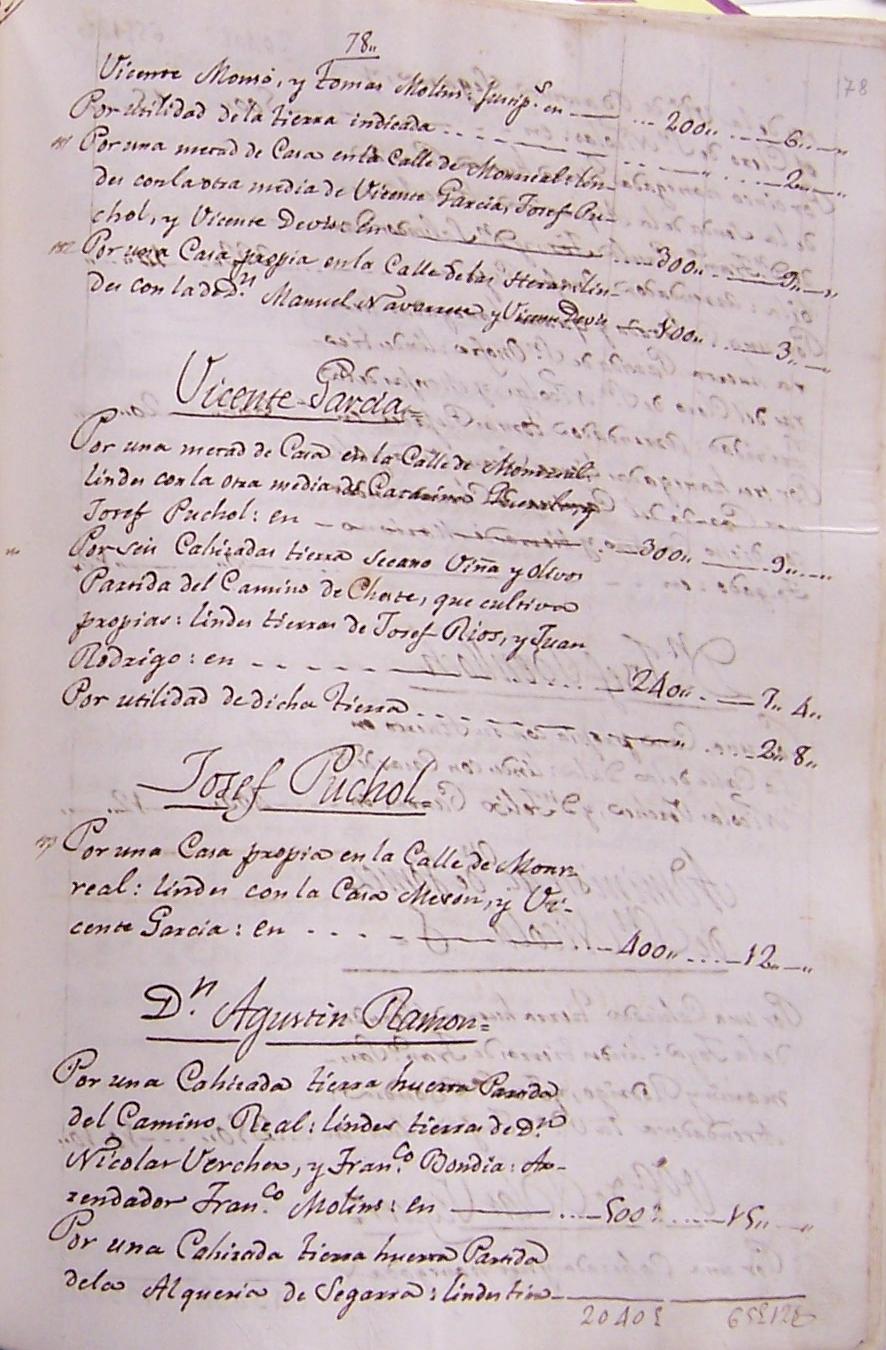 78,,
78
Vicente Monsó, y Tomas Molins: en ... 200,, ... 6,, — ,,
Por utilidad de la tierra indicada ... ,, ... 2,, — ,,
181 Por una metad de Casa en la Calle de Monrreal: lin-
des con la otra media de Vicente Garcia, Josef Pu-
chol, y Vicente Devis: En ... 300,, ... 9,, — ,,
182 Por una Casa propia en la Calle de las Heras: lin-
des con la de Dn. Manuel Navarrete y Vicente Devis ... 100,, ... 3,, — ,,
Vicente Garcia =
Por una metad de Casa en la Calle de Monrreal:
lindes con la otra media de
Josef Puchol: en ... 300,, ... 9,, — ,,
Por seis Cahizadas tierra secano Viña y olivos
Partida del Camino de Cheste, que cultiva
propias: lindes tierras de Josef Rios, y Juan
Rodrigo: en ... 240,, ... 7,, 4,,
Por utilidad de dicha tierra ... ,, ... 2,, 8,,
Josef Puchol =
Por una Casa propia en la Calle de Monr-
real: lindes con la Casa Meson, y Vi-
cente Garcia: en ... 400,, ... 12,, — ,,
Dn. Agustin Ramon =
Por una Cahizada tierra huerta Partida
del Camino Real: lindes tierras de Dn.
Nicolas Vercher, y Franco. Bondia: Ar-
rendador Franco. Molins: en ... 500 ... 15,, — ,,
Por una Cahizada tierra huerta Partida
de la Alqueria de Segarra: lindes tier-
2040 £ 65£12